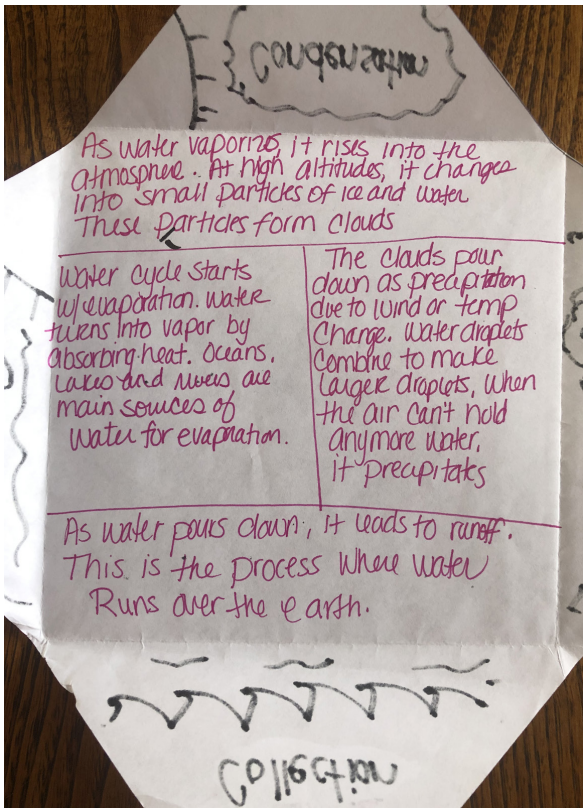 Condensation
As water vaporizes, it rises into the
atmosphere. At high altitudes, it changes
into small particles of ice and water
These particles form clouds
Water cycle starts
w/evaporation. Water
turns into vapor by
absorbing heat. Oceans,
Lakes and rivers are
main sources of
Water for evapration.
The clouds pour
down as precapitation
due to wind or temp
Change. Water droplets
Combine to make
larger droplets, when
the air can't hold
anymore water,
it precipitates
As water pours down, it leads to runoff.
This is the process where water
Runs over the earth.
Collection